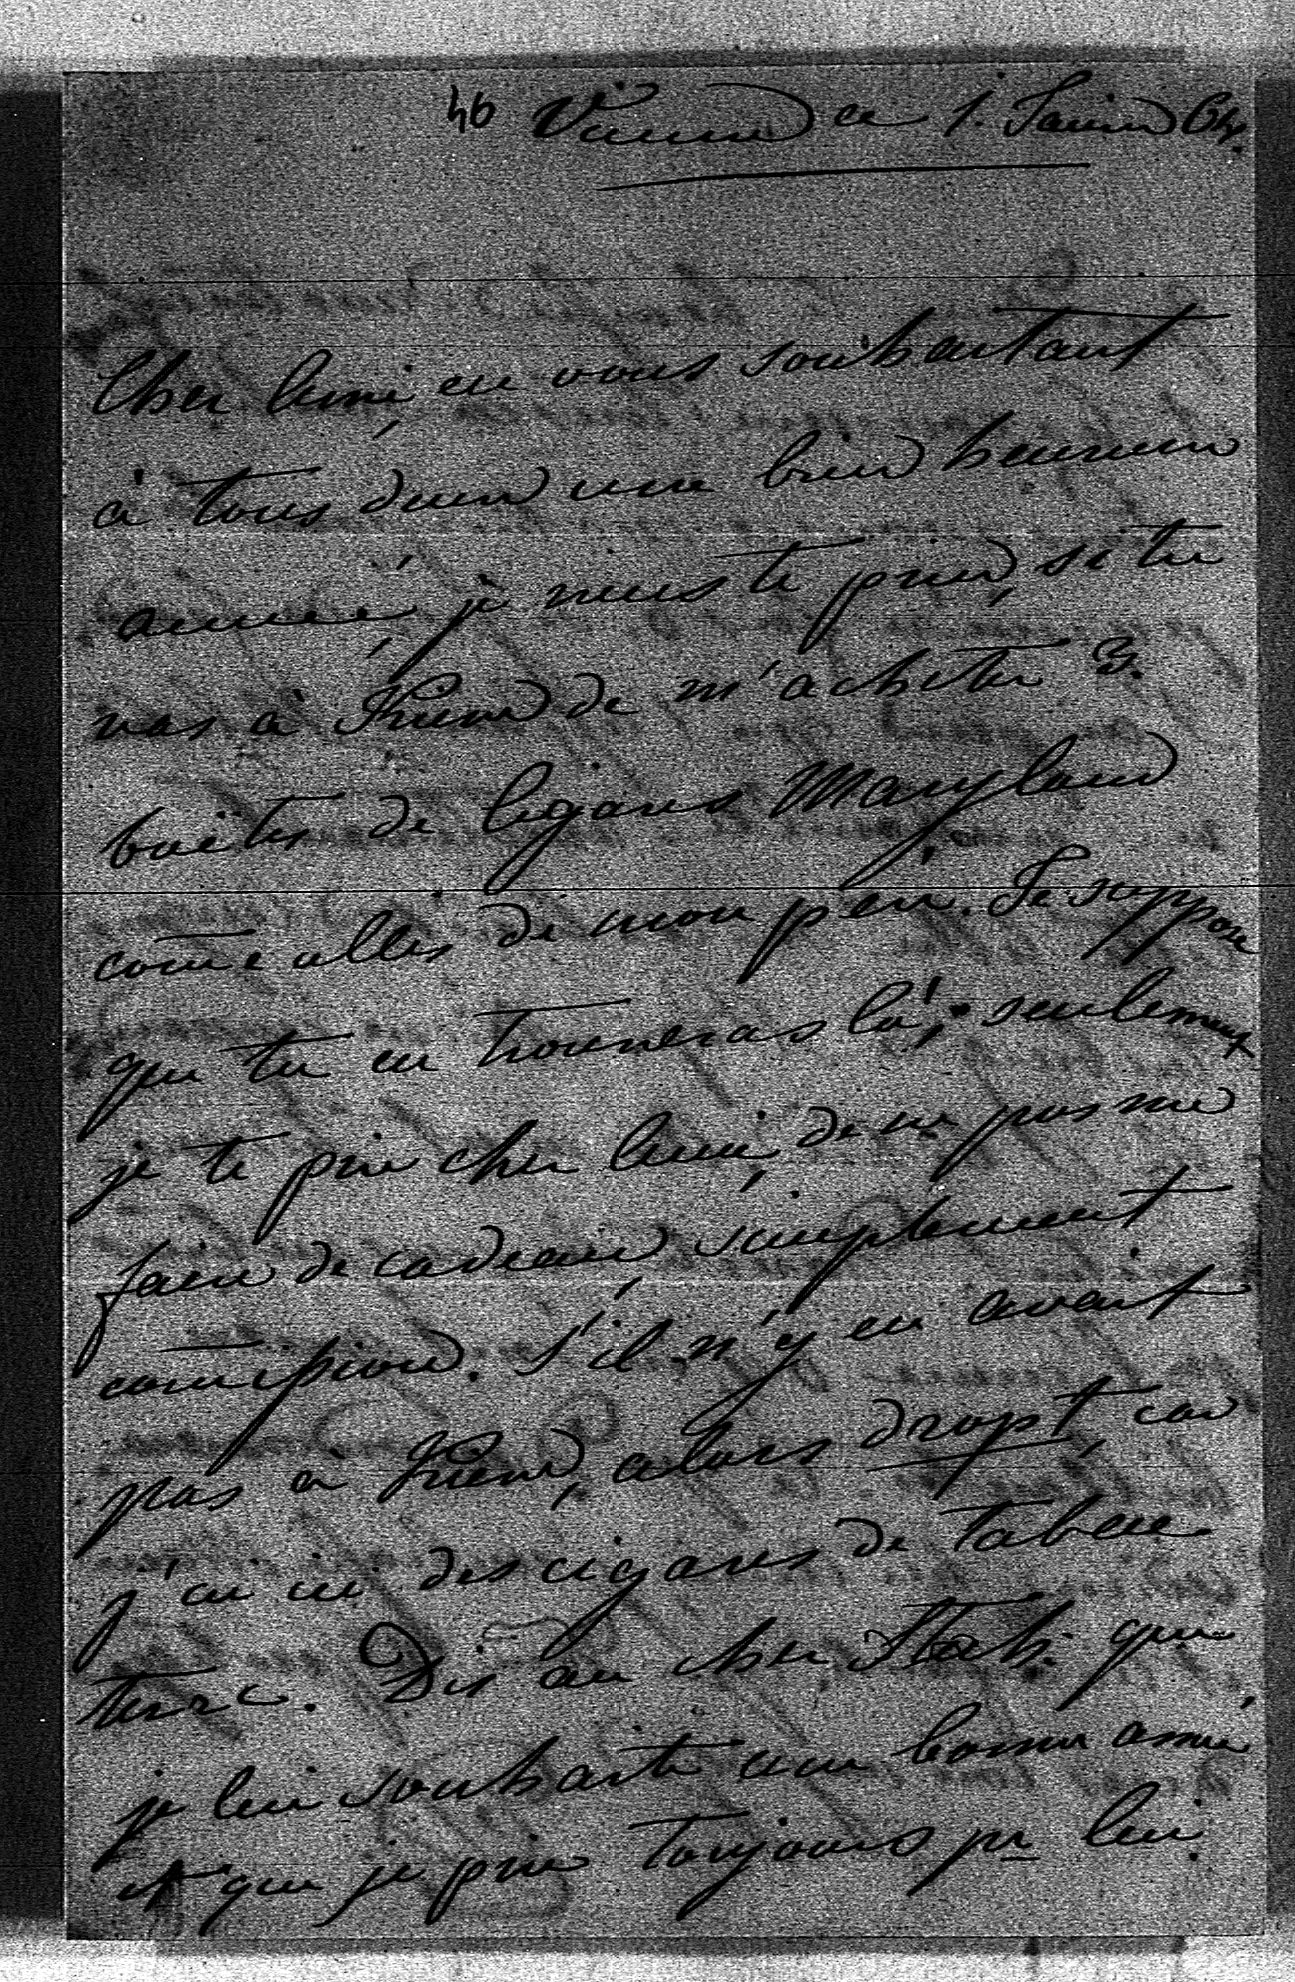 46 Vienne ce 1. Janvier 64.
Cher Ami, en vous souhaitant
à tous deux une bien heureuse
année, je veux te prier, si tu
vas à de m'acheter 3.
boëtes de Cigares Maryland
comme celles de mon père. Je suppose
que tu en trouveras là; seulement
je te prie cher Ami, de ne pas me
faire de cadeau, simplement
S'il n'y en avait
pas à alors dropt, car
j'ai ici des cigares de tabac
turc. Dis au cher Stach. que
je lui souhaite une bonne année
et que je prie toujours pr lui.